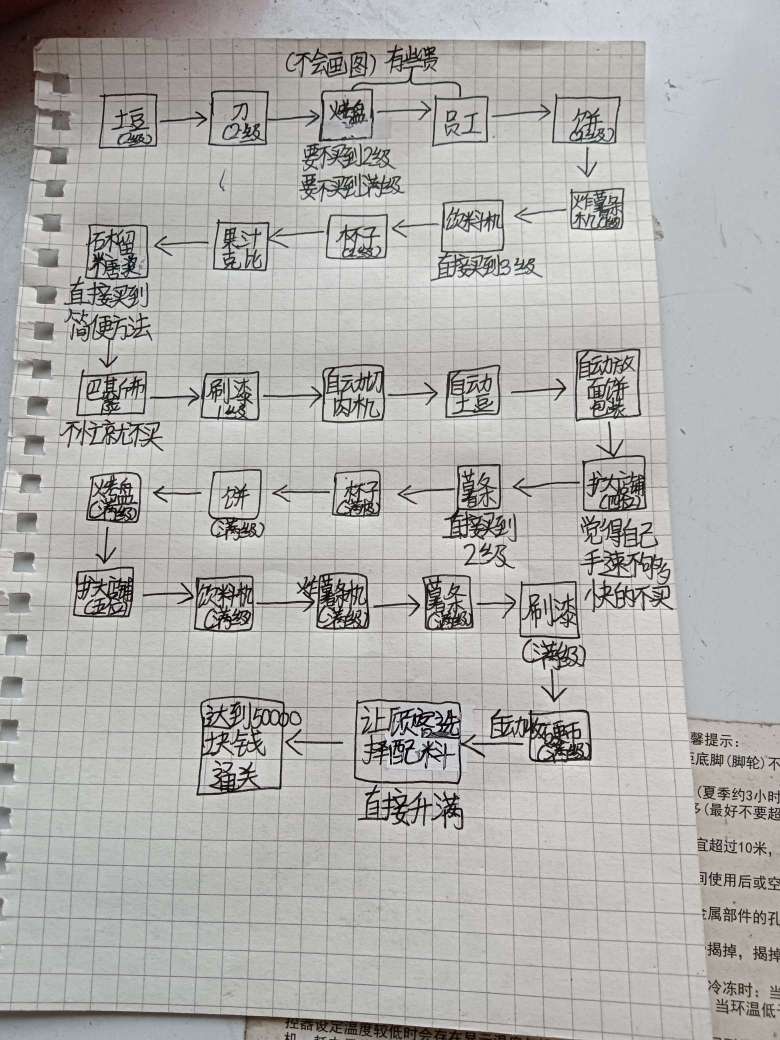 (不会画图) 有些贵
土豆 (2级)
刀 (2级)
烤盘
员工
饼
要不买到2级
要不买到满级
炸薯条
饮料机
直接买到3级
杯子
果汁
克比
石榴
糖浆
直接买到
简便方法
巴基斯布
不忙就不买
刷漆
1级
自动切
肉机
自动
土豆
自动放
面饼
包装
扩大店铺
觉得自己
手速不够多
快的不买
薯条
直接买到
2级
杯子
(满级)
饼
(满级)
烤盘
(满级)
扩大店铺
饮料机
(满级)
炸薯条机
(满级)
薯条
(满级)
刷漆
(满级)
自动收硬币
(满级)
让顾客选
择配料
直接升满
达到50000
块钱
通关
馨提示:
底脚(脚轮)不
(夏季约3小时
(最好不要超
宜超过10米,
间使用后或空
金属部件的孔
揭掉,揭掉
冷冻时: 当
当环温低于
控器设定温度较低时会存在显示温度